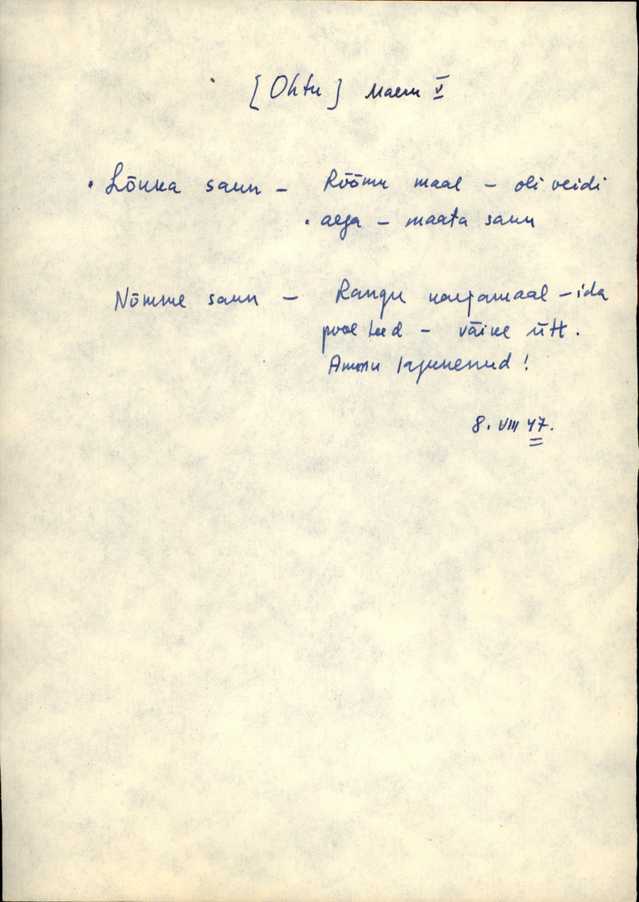 [Ohtu] Maem V
• Lõuka saun – Rõõmu maal – oli veidi
• aega – maata saun
Nõmme saun – Rangu karjamaal – ida
pool teed – väike ütt.
Ammu kujunenud!
8. VIII 47.